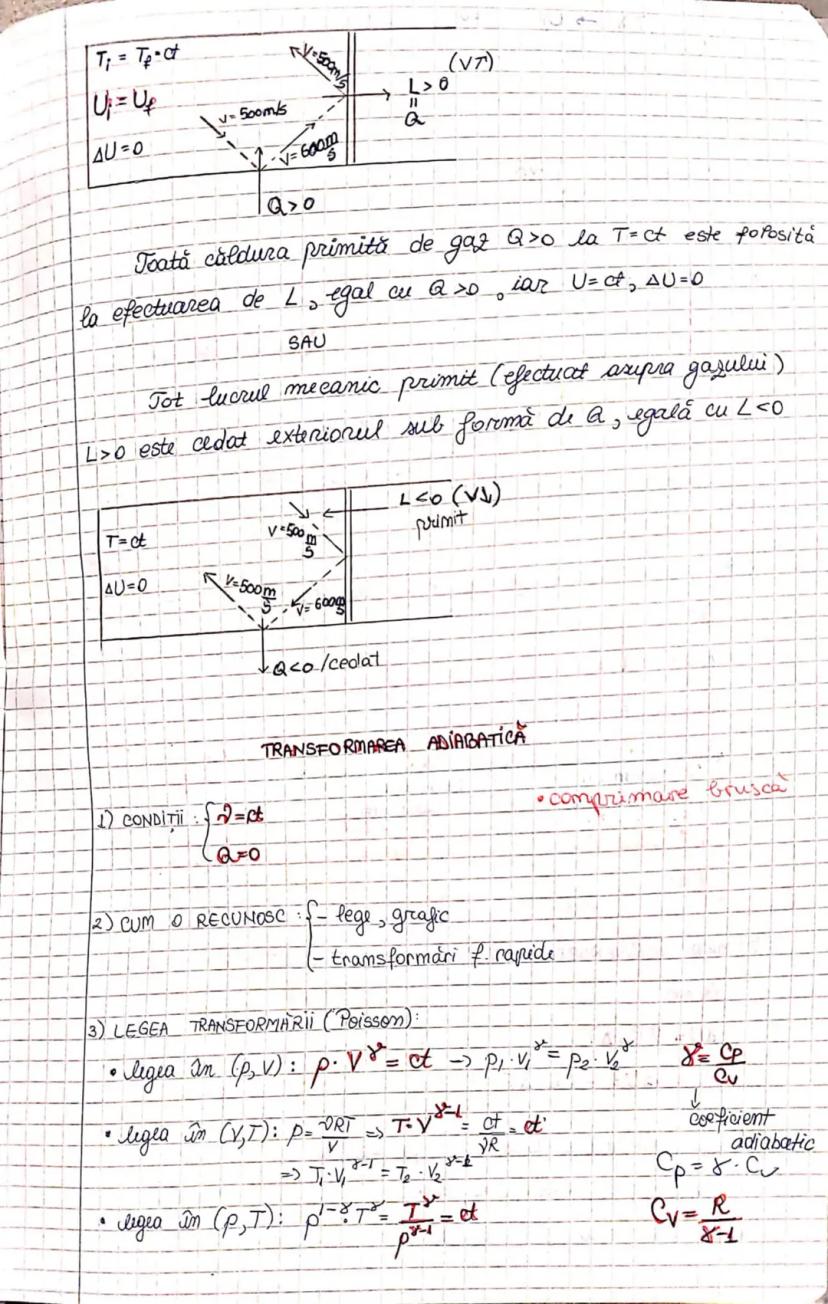 Ti = Tf = ct
Ui = Uf
ΔU = 0
v = 500m/s
v = 600 m/s
v = 500m/s
(V↑)
L > 0
=
Q
Q > 0
Toată căldura primită de gaz Q>0 la T=ct este folosită
la efectuarea de L, egal cu Q>0, iar U=ct, ΔU=0
SAU
Tot lucrul mecanic primit (efectuat asupra gazului)
L>0 este cedat exteriorul sub formă de Q, egală cu L<0
L<0 (V↓)
primit
T=ct
ΔU=0
v=500 m/s
v=500 m/s
v=600 m/s
Q<0/cedat
TRANSFORMAREA ADIABATICĂ
• comprimare bruscă
1) CONDIȚII : { ν=ct
Q=0
2) CUM O RECUNOSC : { - lege, grafic
- transformări f. rapide
3) LEGEA TRANSFORMĂRII (Poisson):
• legea în (p,V): p·V^γ = ct → p₁·V₁^γ = p₂·V₂^γ
γ = Cp/Cv
↓
coeficient
adiabatic
• legea în (V,T): p = νRT/V => T·V^γ-1 = ct/νR = ct'
=> T₁·V₁^γ-1 = T₂·V₂^γ-1
Cp = γ·Cv
• legea în (p,T): p^1-γ·T^γ = T^γ/p^γ-1 = ct
Cv = R/γ-1